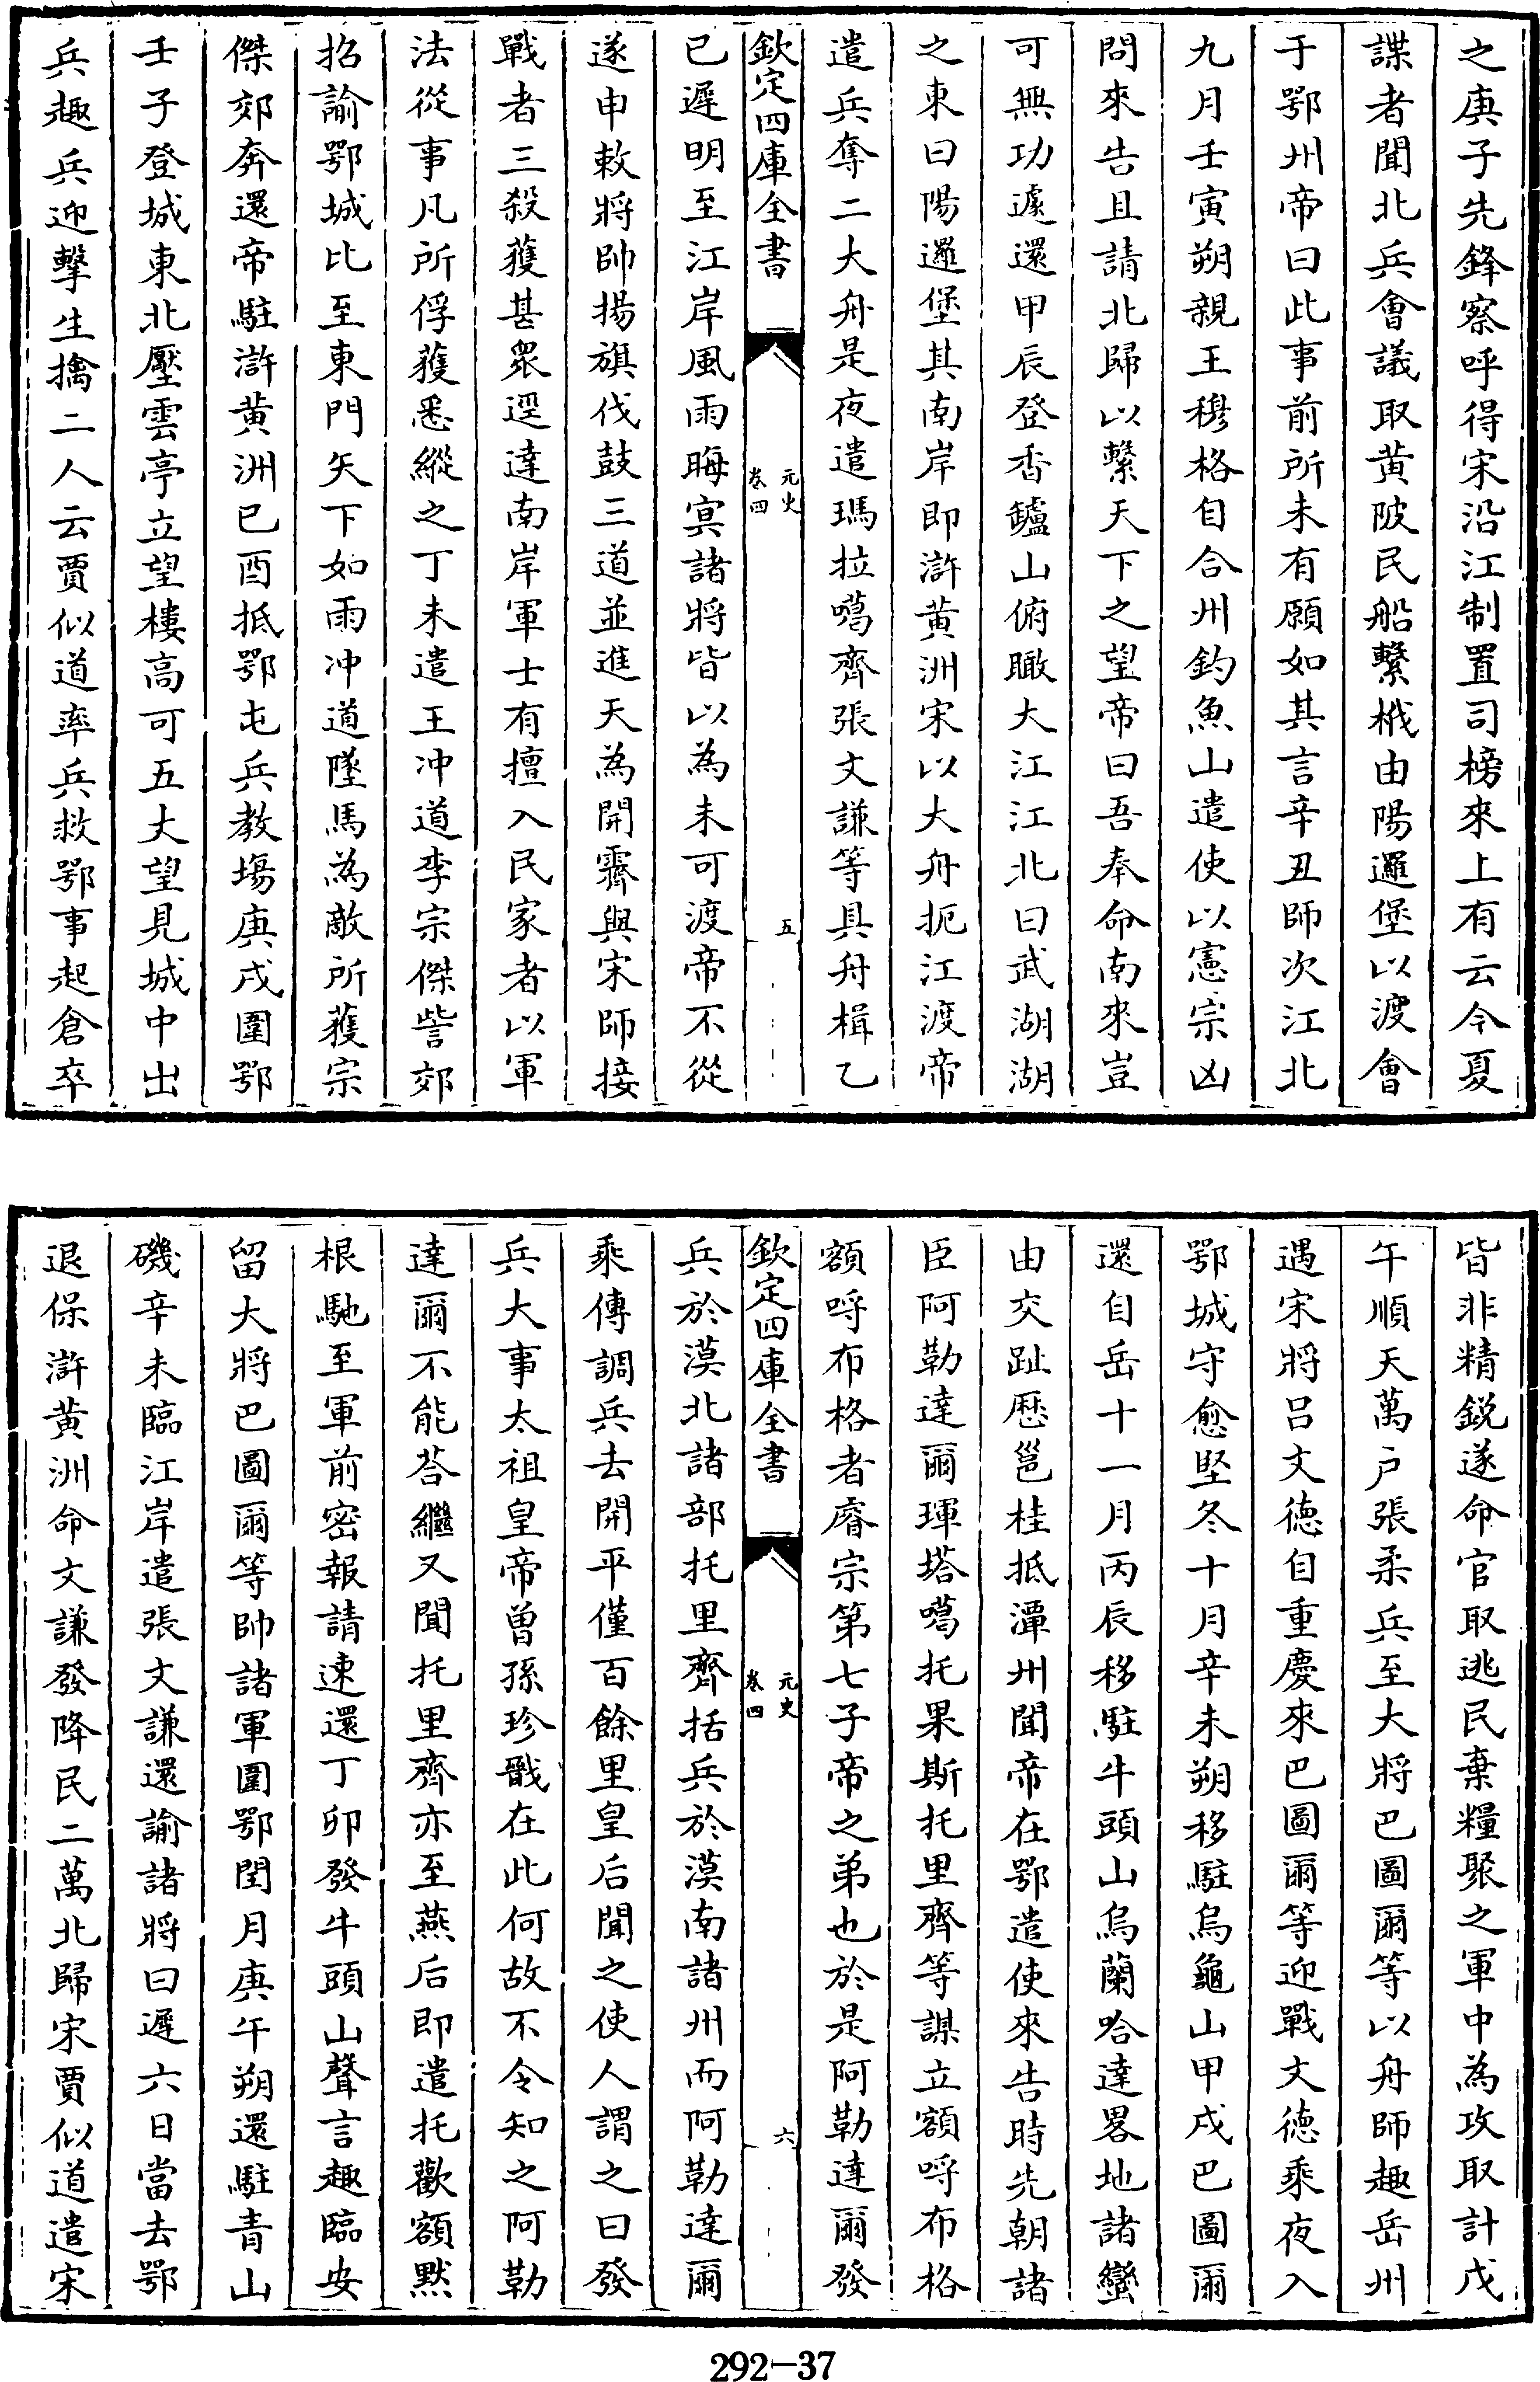 之庚子先鋒察呼得宋沿江制置司榜來上有云今夏
諜者聞北兵會議取黃陂民船繫栰由陽邏堡以渡會
于鄂州帝曰此事前所未有願如其言辛丑師次江北
九月壬寅朔親王穆格自合州釣魚山遣使以憲宗凶
問來告且請北歸以繫天下之望帝曰吾奉命南來豈
可無功遽還甲辰登香鑪山俯瞰大江江北曰武湖湖
之東曰陽邏堡其南岸即滸黃洲宋以大舟扼江渡帝
遣兵奪二大舟是夜遣瑪拉噶齊張文謙等具舟楫乙
欽定四庫全書
元史
卷四
五
已遲明至江岸風雨晦冥諸將皆以為未可渡帝不從
遂申敕將帥揚旗伐鼓三道並進天為開霽與宋師接
戰者三殺獲甚衆逕達南岸軍士有擅入民家者以軍
法從事凡所俘獲悉縱之丁未遣王冲道李宗傑訾郊
招諭鄂城比至東門矢下如雨冲道墜馬為敵所獲宗
傑郊奔還帝駐滸黃洲已酉抵鄂屯兵教塲庚戌圍鄂
壬子登城東北壓雲亭立望樓高可五丈望見城中出
兵趣兵迎擊生擒二人云賈似道率兵救鄂事起倉卒
皆非精銳遂命官取逃民棄糧聚之軍中為攻取計戊
午順天萬户張柔兵至大將巴圖爾等以舟師趣岳州
遇宋將呂文德自重慶來巴圖爾等迎戰文德乘夜入
鄂城守愈堅冬十月辛未朔移駐烏龜山甲戌巴圖爾
還自岳十一月丙辰移駐牛頭山烏蘭哈達畧地諸蠻
由交趾歷邕桂抵潭州聞帝在鄂遣使來告時先朝諸
臣阿勒達爾琿塔噶托果斯托里齊等謀立額呼布格
額呼布格者睿宗第七子帝之弟也於是阿勒達爾發
欽定四庫全書
元史
卷四
六
兵於漠北諸部托里齊括兵於漠南諸州而阿勒達爾
乘傳調兵去開平僅百餘里皇后聞之使人謂之曰發
兵大事太祖皇帝曾孫珍戩在此何故不令知之阿勒
達爾不能荅繼又聞托里齊亦至燕后即遣托歡額默
根馳至軍前密報請速還丁卯發牛頭山聲言趣臨安
留大將巴圖爾等帥諸軍圍鄂閏月庚午朔還駐青山
磯辛未臨江岸遣張文謙還諭諸將曰遲六日當去鄂
退保滸黃洲命文謙發降民二萬北歸宋賈似道遣宋
292-37